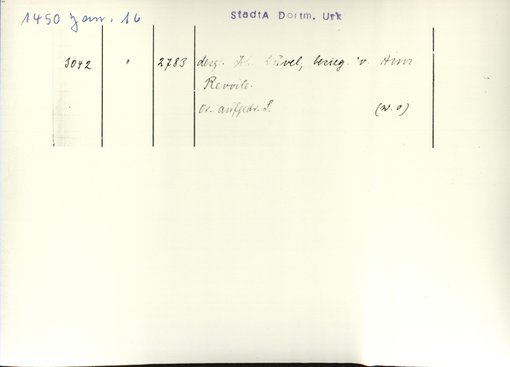 1450 Jan. 16
StadtA Dortm. Urk
3042 " 2783 desgl. Düvel, besieg. v Hinr
Revoite.
Or. aufgedr. S. (w. o)